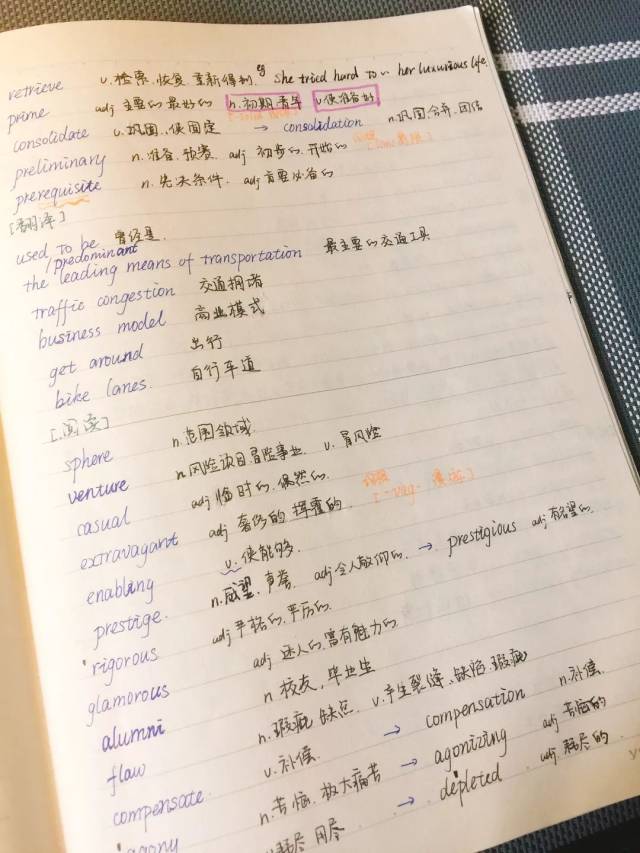 retrieve v.检索.恢复.重新得到. She tried hard to ~ her luxurious life.
prime adj 主要的 最好的 n.初期.青年 v.使准备好
consolidate v.巩固.使固定 → consolidation n.巩固.合并.团结
preliminary n.准备.预赛. adj 初步的.开始的
prerequisite n.先决条件. adj 首要必备的
[翻译]
used to be 曾经是.
the leading/predominant means of transportation 最主要的交通工具
traffic congestion 交通拥堵
business model 商业模式
get around 出行
bike lanes. 自行车道
[阅读]
sphere n.范围领域.
venture n.风险项目冒险事业. v.冒风险
casual adj 临时的.偶然的.
extravagant adj 奢侈的 挥霍的.
enabling v.使能够.
prestige. n.威望.声誉. adj 令人敬仰的. → prestigious adj 有名望的.
rigorous adj 严格的.严厉的.
glamorous adj 迷人的.富有魅力的
alumni n 校友.毕业生
flaw n.瑕疵 缺点. v.产生裂缝.缺陷.瑕疵
compensate v.补偿. → compensation n.补偿.
agony n.苦恼.极大痛苦 → agonizing adj 苦恼的
耗尽 用尽 → depleted adj.耗尽的